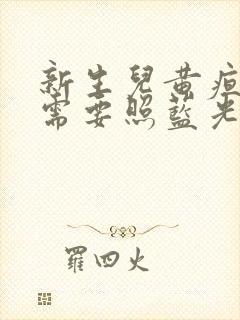 新生兒黃疸
需要照藍光
羅四火